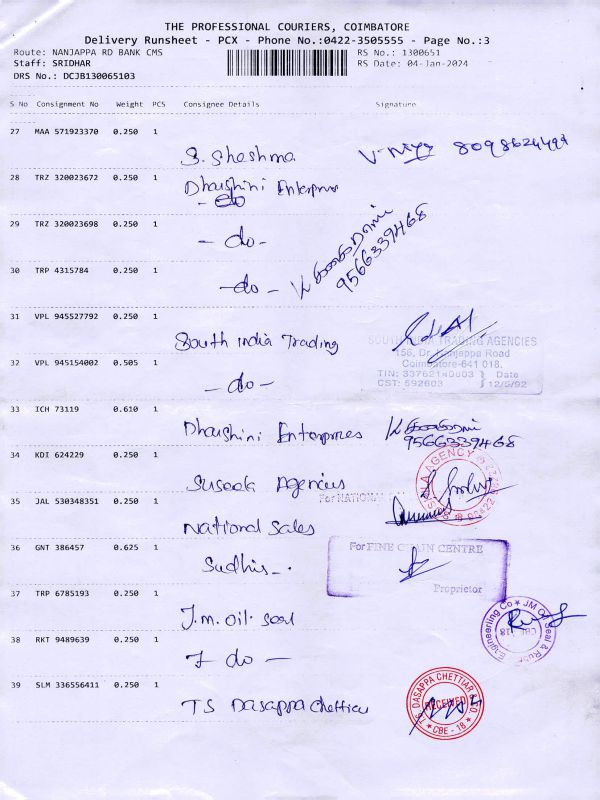 THE PROFESSIONAL COURIERS, COIMBATORE
Delivery Runsheet - PCX - Phone No.:0422-3505555 - Page No.:3
Route: NANJAPPA RD BANK CMS
RS No.: 1300651
Staff: SRIDHAR
RS Date: 04-Jan-2024
DRS No.: DCJB130065103
S No Consignment No Weight PCS Consignee Details Signature
27 MAA 571923370 0.250 1
S. Sheshma
28 TRZ 320023672 0.250 1
Dharshini Enterprises
- do
29 TRZ 320023698 0.250 1
- do -
30 TRP 4315784 0.250 1
- do -
9566339468
31 VPL 945527792 0.250 1
South india Trading
SOUTH INDIA TRADING AGENCIES
156, Dr. Nanjappa Road
Coimbatore-641 018.
Date
CST: 592603 } 12/5/92
32 VPL 945154002 0.505 1
- do -
33 ICH 73119 0.610 1
Dharshini Enterprises
9566339468
34 KDI 624229 0.250 1
Agencies
AGENCY
35 JAL 530348351 0.250 1
For NATIONAL
National Sales
36 GNT 386457 0.625 1
Sudhis -.
For FINE CHAIN CENTRE
Proprietor
37 TRP 6785193 0.250 1
J.m. oil. seal
Engineering Co ★ JM Oil Seal &
CBE-18
38 RKT 9489639 0.250 1
do -
39 SLM 336556411 0.250 1
TS Dasappa chettier
T.S. DASAPPA CHETTIAR & CO
RECEIVED
★ CBE - 18 ★